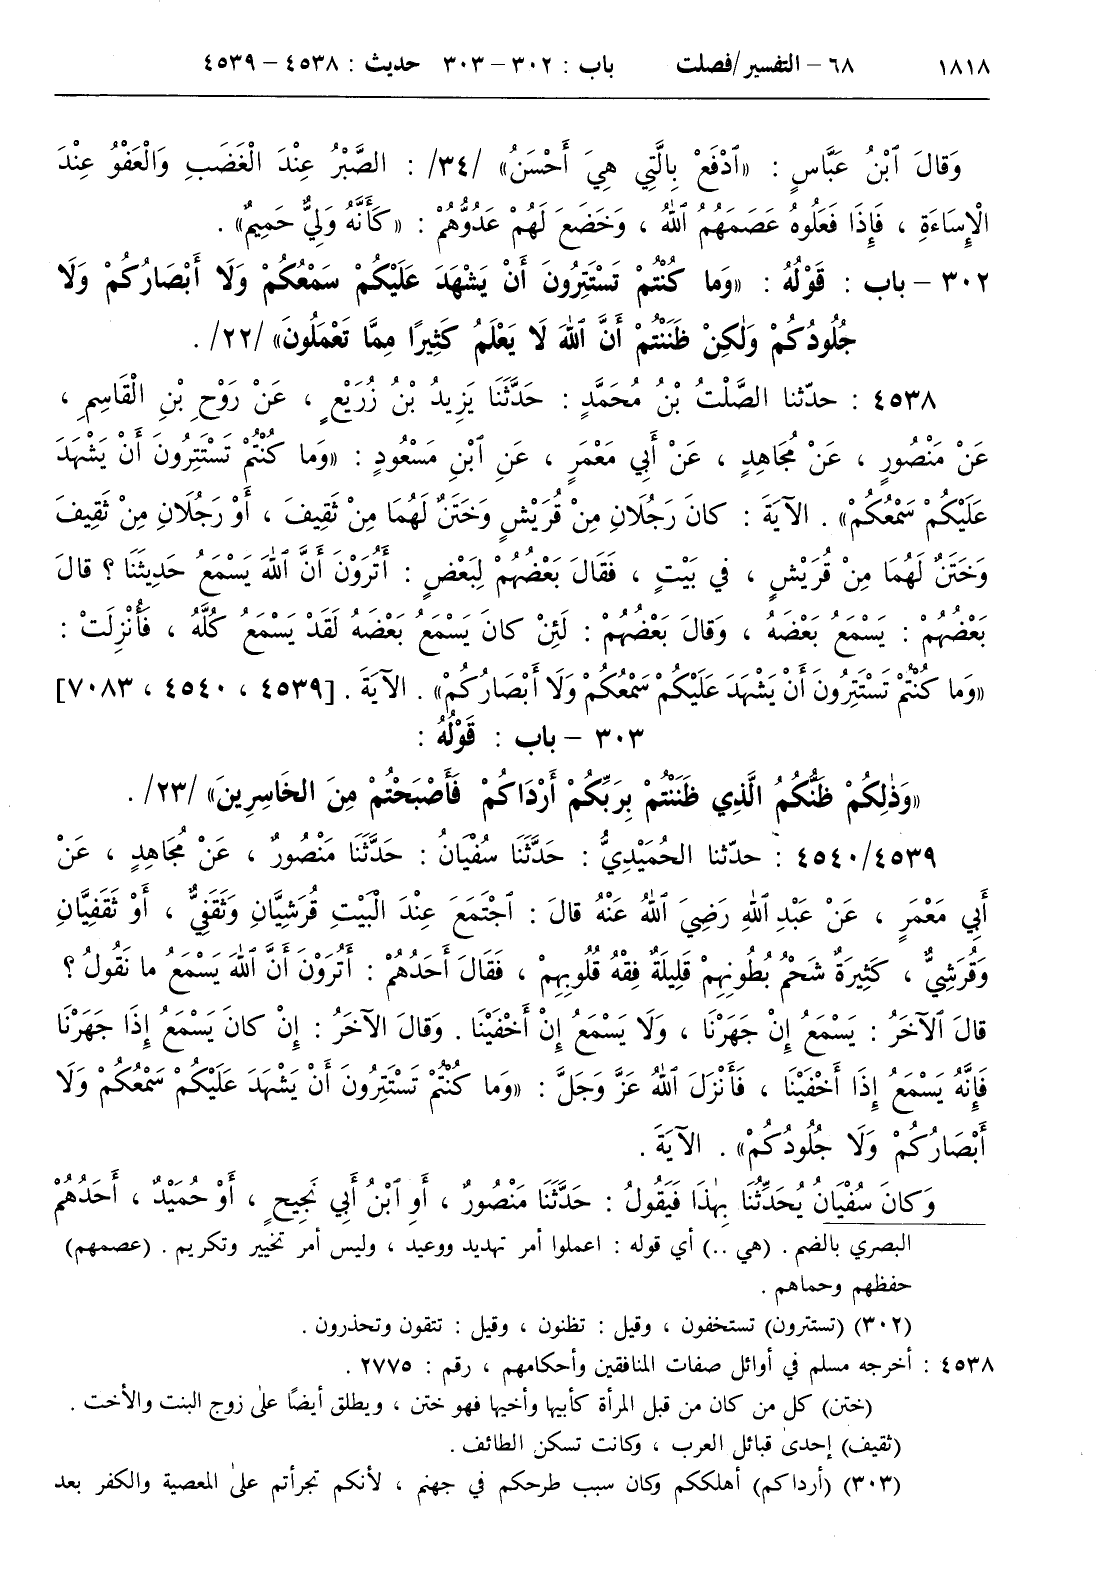 ١٨١٨ ٦٨ - التفسير/فصلت باب : ٣٠٢ - ٣٠٣ حديث : ٤٥٣٨ - ٤٥٣٩
وَقَالَ ٱبْنُ عَبَّاسٍ : «ٱدْفَعْ بِالَّتِي هِيَ أَحْسَنُ» /٣٤/ : الصَّبْرُ عِنْدَ الْغَضَبِ وَالْعَفْوُ عِنْدَ
الْإِسَاءَةِ ، فَإِذَا فَعَلُوهُ عَصَمَهُمُ ٱللهُ ، وَخَضَعَ لَهُمْ عَدُوُّهُمْ : «كَأَنَّهُ وَلِيٌّ حَمِيمٌ» .
٣٠٢ - باب : قَوْلُهُ : «وَما كُنْتُمْ تَسْتَتِرُونَ أَنْ يَشْهَدَ عَلَيْكُمْ سَمْعُكُمْ وَلَا أَبْصَارُكُمْ وَلَا
جُلُودُكُمْ وَلٰكِنْ ظَنَنْتُمْ أَنَّ ٱللهَ لَا يَعْلَمُ كَثِيرًا مِمَّا تَعْمَلُونَ» /٢٢/ .
٤٥٣٨ : حدّثنا الصَّلْتُ بْنُ مُحَمَّدٍ : حَدَّثَنَا يَزِيدُ بْنُ زُرَيْعٍ ، عَنْ رَوْحِ بْنِ الْقَاسِمِ ،
عَنْ مَنْصُورٍ ، عَنْ مُجَاهِدٍ ، عَنْ أَبِي مَعْمَرٍ ، عَنِ ٱبْنِ مَسْعُودٍ : «وَما كُنْتُمْ تَسْتَتِرُونَ أَنْ يَشْهَدَ
عَلَيْكُمْ سَمْعُكُمْ» . الآيَةَ : كانَ رَجُلَانِ مِنْ قُرَيْشٍ وَخَتَنٌ لَهُمَا مِنْ ثَقِيفَ ، أَوْ رَجُلَانِ مِنْ ثَقِيفَ
وَخَتَنٌ لَهُمَا مِنْ قُرَيْشٍ ، في بَيْتٍ ، فَقَالَ بَعْضُهُمْ لِبَعْضٍ : أَتُرَوْنَ أَنَّ ٱللهَ يَسْمَعُ حَدِيثَنَا ؟ قالَ
بَعْضُهُمْ : يَسْمَعُ بَعْضَهُ ، وَقالَ بَعْضُهُمْ : لَئِنْ كانَ يَسْمَعُ بَعْضَهُ لَقَدْ يَسْمَعُ كُلَّهُ ، فَأُنْزِلَتْ :
«وَما كُنْتُمْ تَسْتَتِرُونَ أَنْ يَشْهَدَ عَلَيْكُمْ سَمْعُكُمْ وَلَا أَبْصَارُكُمْ» . الآيَةَ . [٤٥٣٩ ، ٤٥٤٠ ، ٧٠٨٣]
٣٠٣ - باب : قَوْلُهُ :
«وَذٰلِكُمْ ظَنُّكُمُ الَّذِي ظَنَنْتُمْ بِرَبِّكُمْ أَرْدَاكُمْ فَأَصْبَحْتُمْ مِنَ الخَاسِرِينَ» /٢٣/ .
٤٥٤٠/٤٥٣٩ : حدّثنا الحُمَيْدِيُّ : حَدَّثَنَا سُفْيَانُ : حَدَّثَنَا مَنْصُورٌ ، عَنْ مُجَاهِدٍ ، عَنْ
أَبِي مَعْمَرٍ ، عَنْ عَبْدِ ٱللهِ رَضِيَ ٱللهُ عَنْهُ قالَ : ٱجْتَمَعَ عِنْدَ الْبَيْتِ قُرَشِيَّانِ وَثَقَفِيٌّ ، أَوْ ثَقَفِيَّانِ
وَقُرَشِيٌّ ، كَثِيرَةٌ شَحْمُ بُطُونِهِمْ قَلِيلَةٌ فِقْهُ قُلُوبِهِمْ ، فَقَالَ أَحَدُهُمْ : أَتُرَوْنَ أَنَّ ٱللهَ يَسْمَعُ ما نَقُولُ ؟
قالَ ٱلْآخَرُ : يَسْمَعُ إِنْ جَهَرْنَا ، وَلَا يَسْمَعُ إِنْ أَخْفَيْنَا . وَقالَ الآخَرُ : إِنْ كانَ يَسْمَعُ إِذَا جَهَرْنَا
فَإِنَّهُ يَسْمَعُ إِذَا أَخْفَيْنَا ، فَأَنْزَلَ ٱللهُ عَزَّ وَجَلَّ : «وَما كُنْتُمْ تَسْتَتِرُونَ أَنْ يَشْهَدَ عَلَيْكُمْ سَمْعُكُمْ وَلَا
أَبْصَارُكُمْ وَلَا جُلُودُكُمْ» . الآيَةَ .
وَكانَ سُفْيَانُ يُحَدِّثُنَا بِهٰذَا فَيَقُولُ : حَدَّثَنَا مَنْصُورٌ ، أَوِ ٱبْنُ أَبِي نَجِيحٍ ، أَوْ حُمَيْدٌ ، أَحَدُهُمْ
البصري بالضم . (هي ..) أي قوله : اعملوا أمر تهديد ووعيد ، وليس أمر تخيير وتكريم . (عصمهم)
حفظهم وحماهم .
(٣٠٢) (تستترون) تستخفون ، وقيل : تظنون ، وقيل : تتقون وتحذرون .
٤٥٣٨ : أخرجه مسلم في أوائل صفات المنافقين وأحكامهم ، رقم : ٢٧٧٥ .
(ختن) كل من كان من قبل المرأة كأبيها وأخيها فهو ختن ، ويطلق أيضًا علىٰ زوج البنت والأخت .
(ثقيف) إحدىٰ قبائل العرب ، وكانت تسكن الطائف .
(٣٠٣) (أرداكم) أهلككم وكان سبب طرحكم في جهنم ، لأنكم تجرأتم علىٰ المعصية والكفر بعد